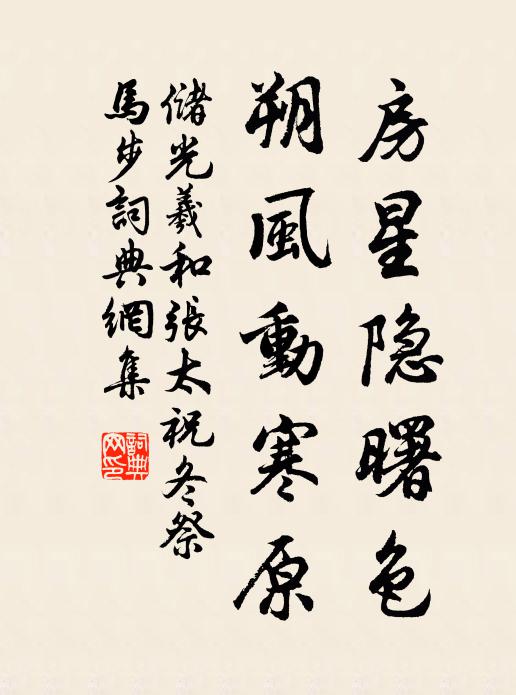 房星隐曙色
朔風動寒原
儲光羲和張太祝冬祭
馬步詞典網集
詞典网印